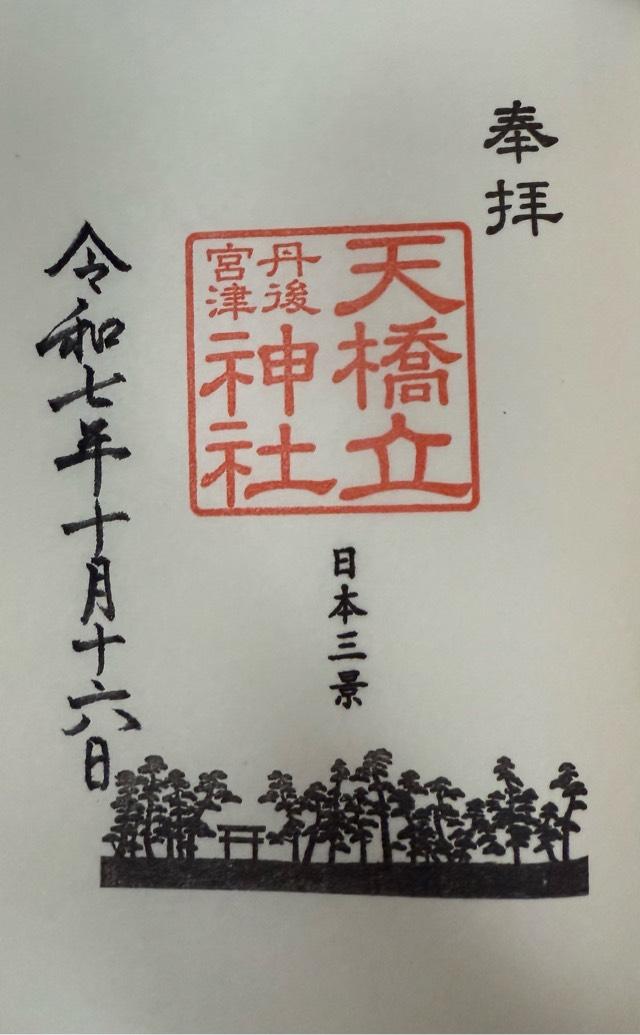 奉拝
天橋立
丹後
宮津
神社
日本三景
令和七年十月十六日